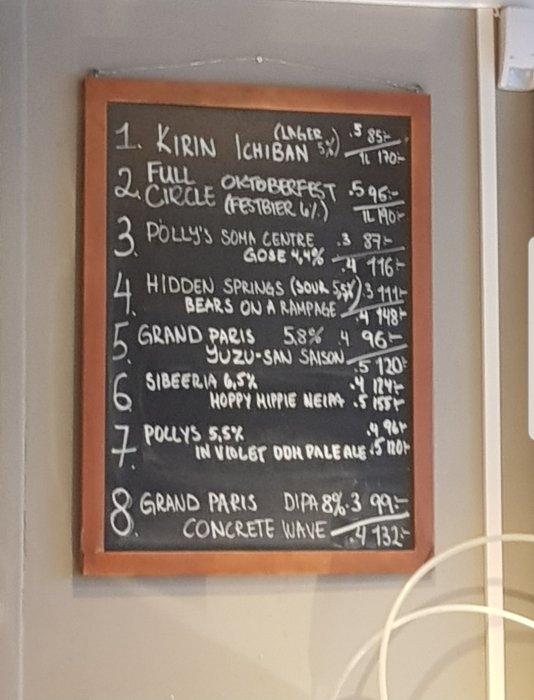 1. KIRIN ICHIBAN (LAGER 5%) .5 85:-
1L 170:-
2. FULL CIRCLE OKTOBERFEST .5 95:-
(FESTBIER 6%) 1L 190:-
3. POLLY'S SOMA CENTRE .3 87:-
GOSE 4,4% .4 116:-
4. HIDDEN SPRINGS (SOUR 5,5%) .3 111:-
BEARS ON A RAMPAGE .4 148:-
5. GRAND PARIS 5,8% .4 96:-
YUZU-SAN SAISON .5 120:-
6 SIBEERIA 6,5% .4 124:-
HOPPY HIPPIE NEIPA .5 155:-
7. POLLYS 5.5% .4 96:-
IN VIOLET DDH PALE ALE .5 120:-
8. GRAND PARIS DIPA 8% .3 99:-
CONCRETE WAVE .4 132:-